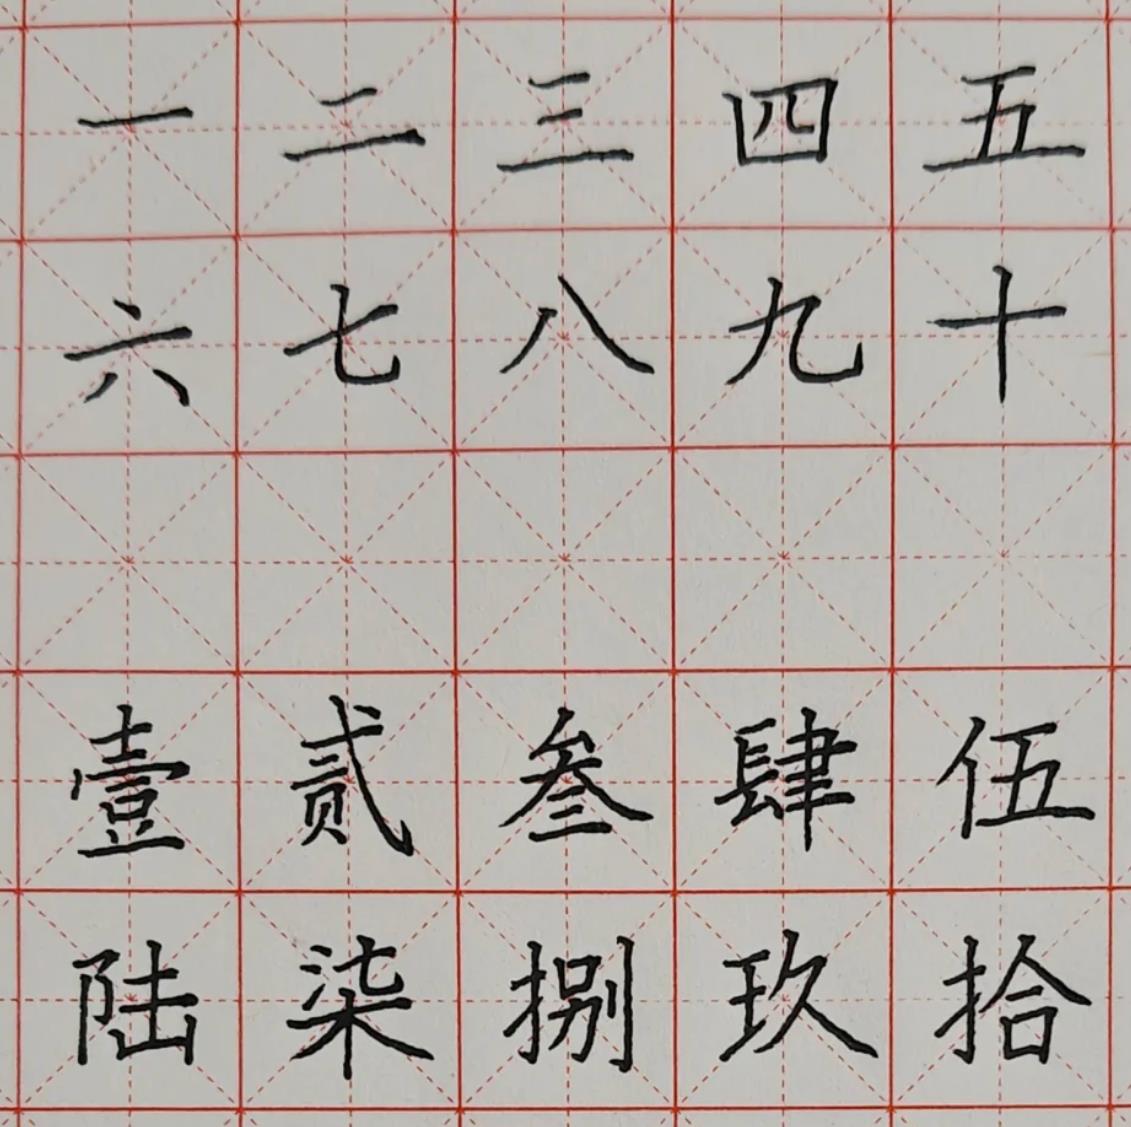 一二三四五
六七八九十
壹贰叁肆伍
陆柒捌玖拾